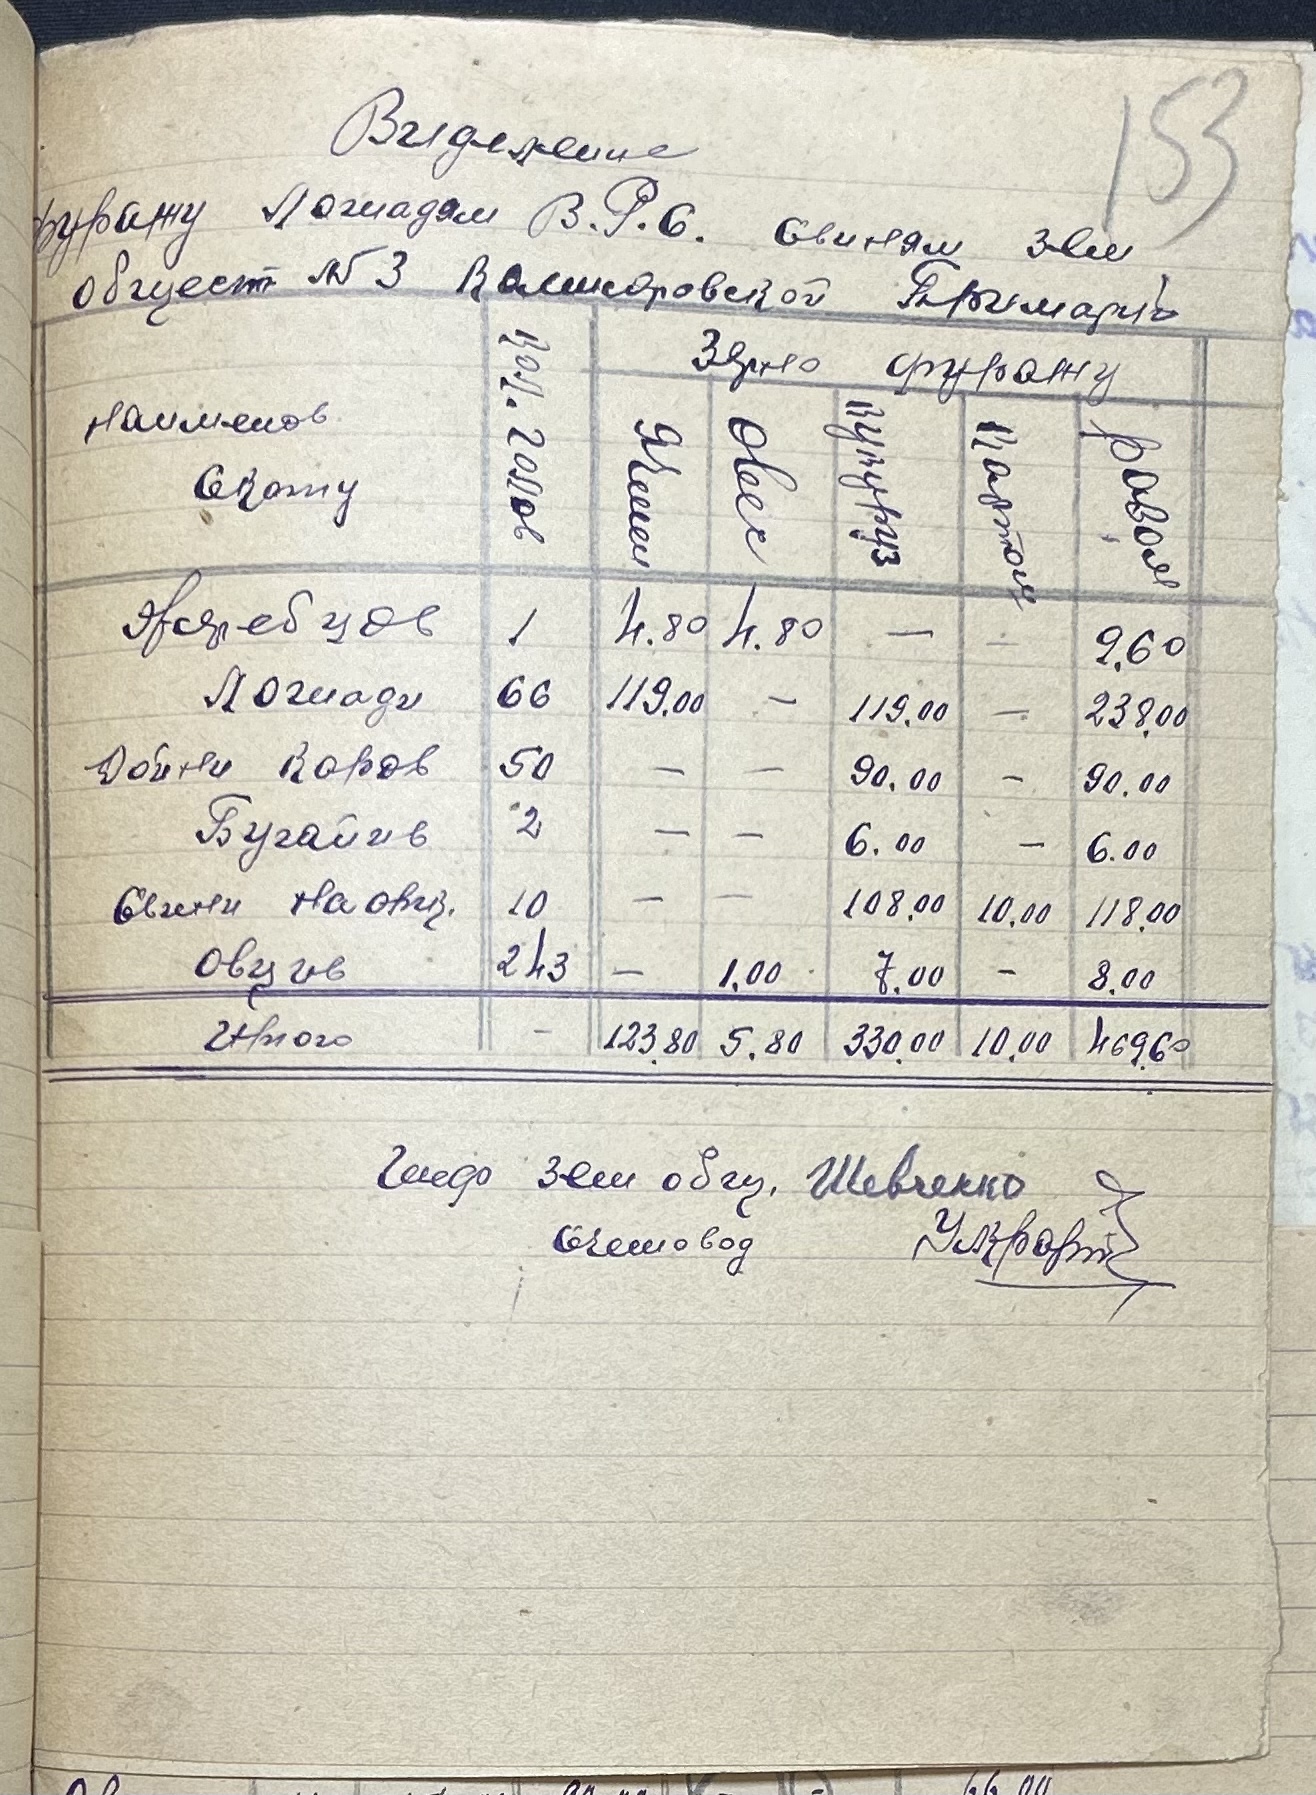 153
Выделение
фуражу Лошадям В.Р.С. свиням зем
общест №3 Примарiи
Наименов Скоту
Кол. голов
Зерно фуражу
Ячмен
Овес
Кукуруз
Картош
Разом
Жеребцов 1 4.80 4.80 — — 9,60
Лошади 66 119.00 — 119.00 — 238.00
Дойни Коров 50 — — 90.00 — 90.00
Бугайив 2 — — 6.00 — 6.00
Свини на 10 — — 108.00 10.00 118.00
Овцив 243 — 1.00 7.00 — 8.00
Итого — 123.80 5.80 330.00 10.00 469.60
Шеф Зем общ. Шевченко
Счетовод